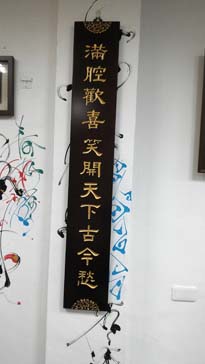 滿腔歡喜笑開天下古今愁